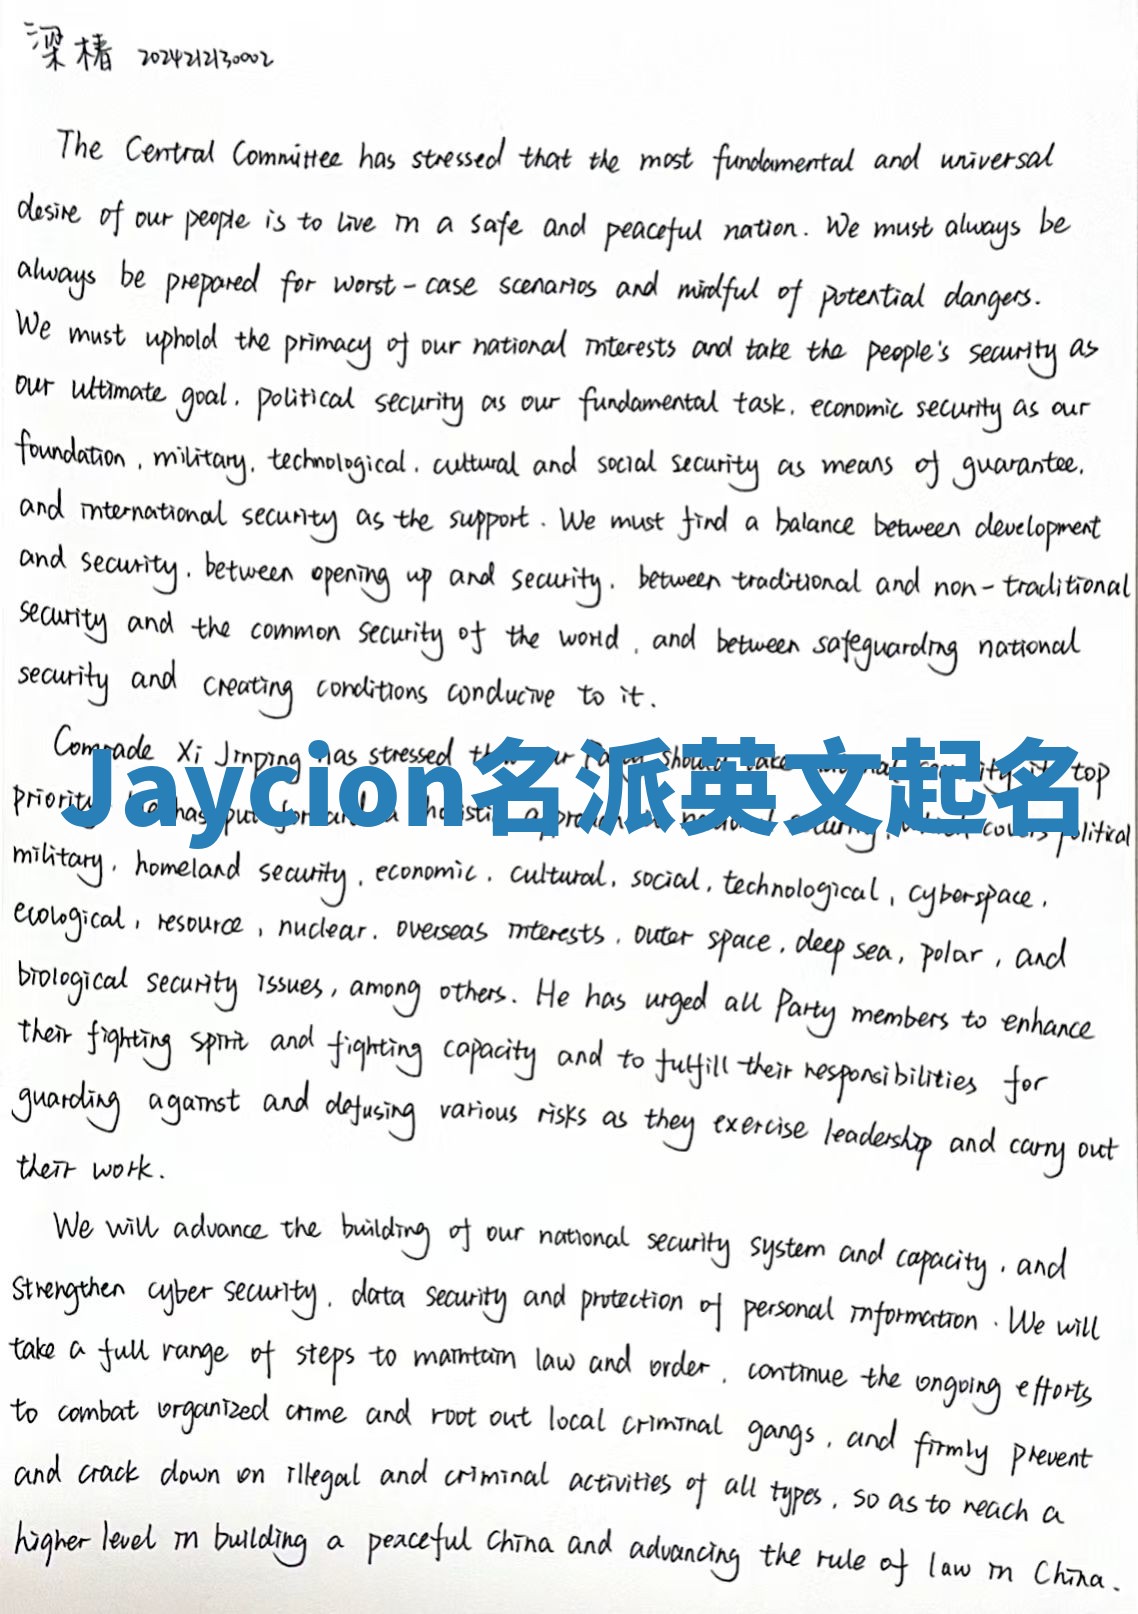 梁椿 2024212130002
The Central Committee has stressed that the most fundamental and universal
desire of our people is to live in a safe and peaceful nation. We must always be
always be prepared for worst-case scenarios and mindful of potential dangers.
We must uphold the primacy of our national interests and take the people's security as
our ultimate goal, political security as our fundamental task, economic security as our
foundation, military, technological, cultural and social security as means of guarantee,
and international security as the support. We must find a balance between development
and security, between opening up and security, between traditional and non-traditional
security and the common security of the world, and between safeguarding national
security and creating conditions conducive to it.
Comrade Xi Jinping has stressed should take top
Jaycion名派英文起名
priority has put covers political
military, homeland security, economic, cultural, social, technological, cyberspace,
ecological, resource, nuclear, overseas interests, outer space, deep sea, polar, and
biological security issues, among others. He has urged all Party members to enhance
their fighting spirit and fighting capacity and to fulfill their responsibilities for
guarding against and defusing various risks as they exercise leadership and carry out
their work.
We will advance the building of our national security system and capacity, and
strengthen cyber security, data security and protection of personal information. We will
take a full range of steps to maintain law and order, continue the ongoing efforts
to combat organized crime and root out local criminal gangs, and firmly prevent
and crack down on illegal and criminal activities of all types, so as to reach a
higher level in building a peaceful China and advancing the rule of law in China.